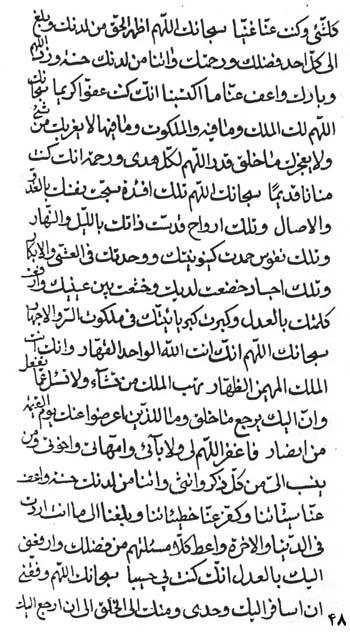 كلشئ وكنت عنا غنيا سبحانك اللهم اظهر الحق من لدنك وبلغ
الى كل احد فضلك ورحمتك واتنا من لدنك حسنة وزد اللهم
وبارك واعف عنا ما اكتسبنا انك كنت عفوا كريما سبحانك
اللهم لك الملك وما فيه والملكوت وما فيها لا يعزب من شئ
ولا يعجزك ما خلق قدر اللهم لكل هدى ورحمة انك كنت
منانا قديما سبحانك اللهم تلك افئدة سبحت بفنك بالغدو
والاصال وتلك ارواح قدست ذاتك بالليل والنهار
وتلك نفوس حمدت كينونيتك ووحدتك فى العشى والابكار
وتلك اجساد خضعت لديك وخشعت بين عينيك وارتفعت
كلمتك بالعدل وكبرت كبريائيتك فى ملكوت السر والاجهار
سبحانك اللهم انك انت الله الواحد القهار وانك انت
الملك المهيمن الظهار تهب الملك من تشآء ولا تسئل عما تفعل
وان اليك يرجع ما خلق وما للذين اعرضوا عنك يوم القيمة
من انصار فاغفر اللهم لى ولابآئى وامهاتى واخوتى ومن
ينسب الى من كل ذكر وانثى واتنا من لدنك حسنة واعف
عنا سيئاتنا وكفر عنا خطيئاتنا وبلغنا الى ما انت اردت
فى الدنيا والاخرة واعط كلا مسئلتهم من فضلك وارفعنى
اليك بالعدل انك كنت بى حسيبا سبحانك اللهم وفقنى
ان اسافر اليك وحدى ومنك الى الخلق الى ان ارجع اليك
۴۸